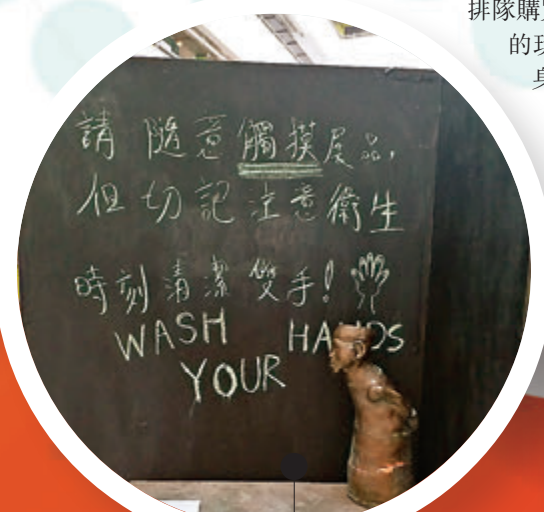 排隊購
的
請隨意觸摸展品,
但切記注意衛生
時刻清潔雙手!
WASH HANDS
YOUR